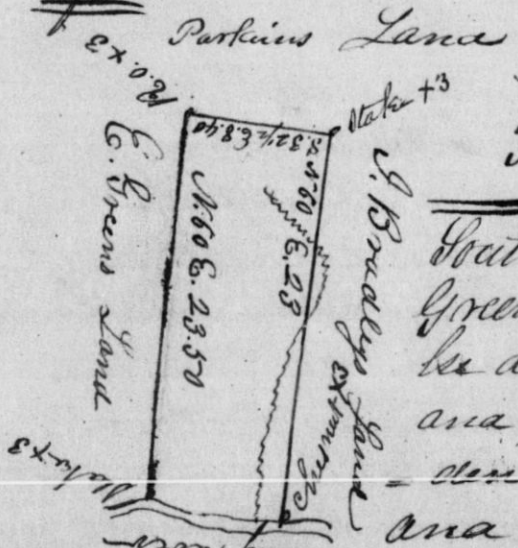 Parkins Land
R.O. x3
Stake +3
S. 32½ E. 8.40
E. Greens Land
N. 60 E. 23.50
N 60 E. 23
J. Bradleys Land
Stake x3
x3
Sout
Green
be a
and
and